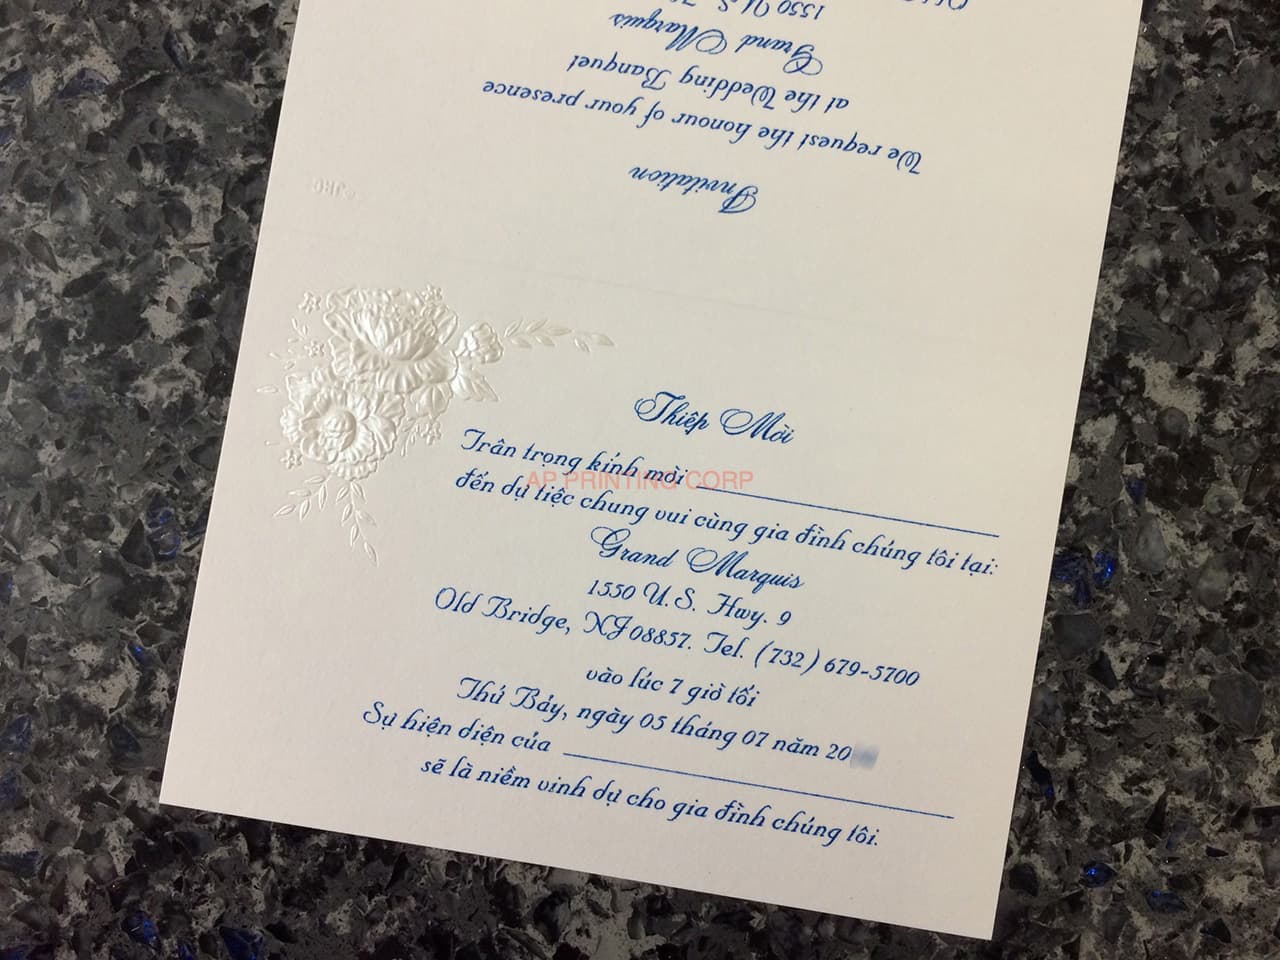 Invitation
We request the honour of your presence
at the Wedding Banquet
Grand Marquis
1550 U.S.
Thiệp Mời
Trân trọng kính mời
đến dự tiệc chung vui cùng gia đình chúng tôi tại:
Grand Marquis
1550 U.S. Hwy. 9
Old Bridge, NJ 08857. Tel. (732) 679-5700
vào lúc 7 giờ tối
Thứ Bảy, ngày 05 tháng 07 năm 20
Sự hiện diện của
sẽ là niềm vinh dự cho gia đình chúng tôi.
AP PRINTING CORP